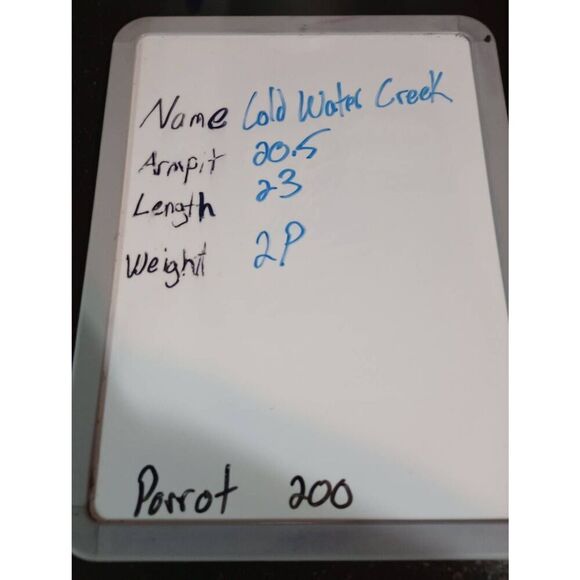 Name Cold Water Creek
Armpit 20.5
Length 23
Weight 2P
Parrot 200